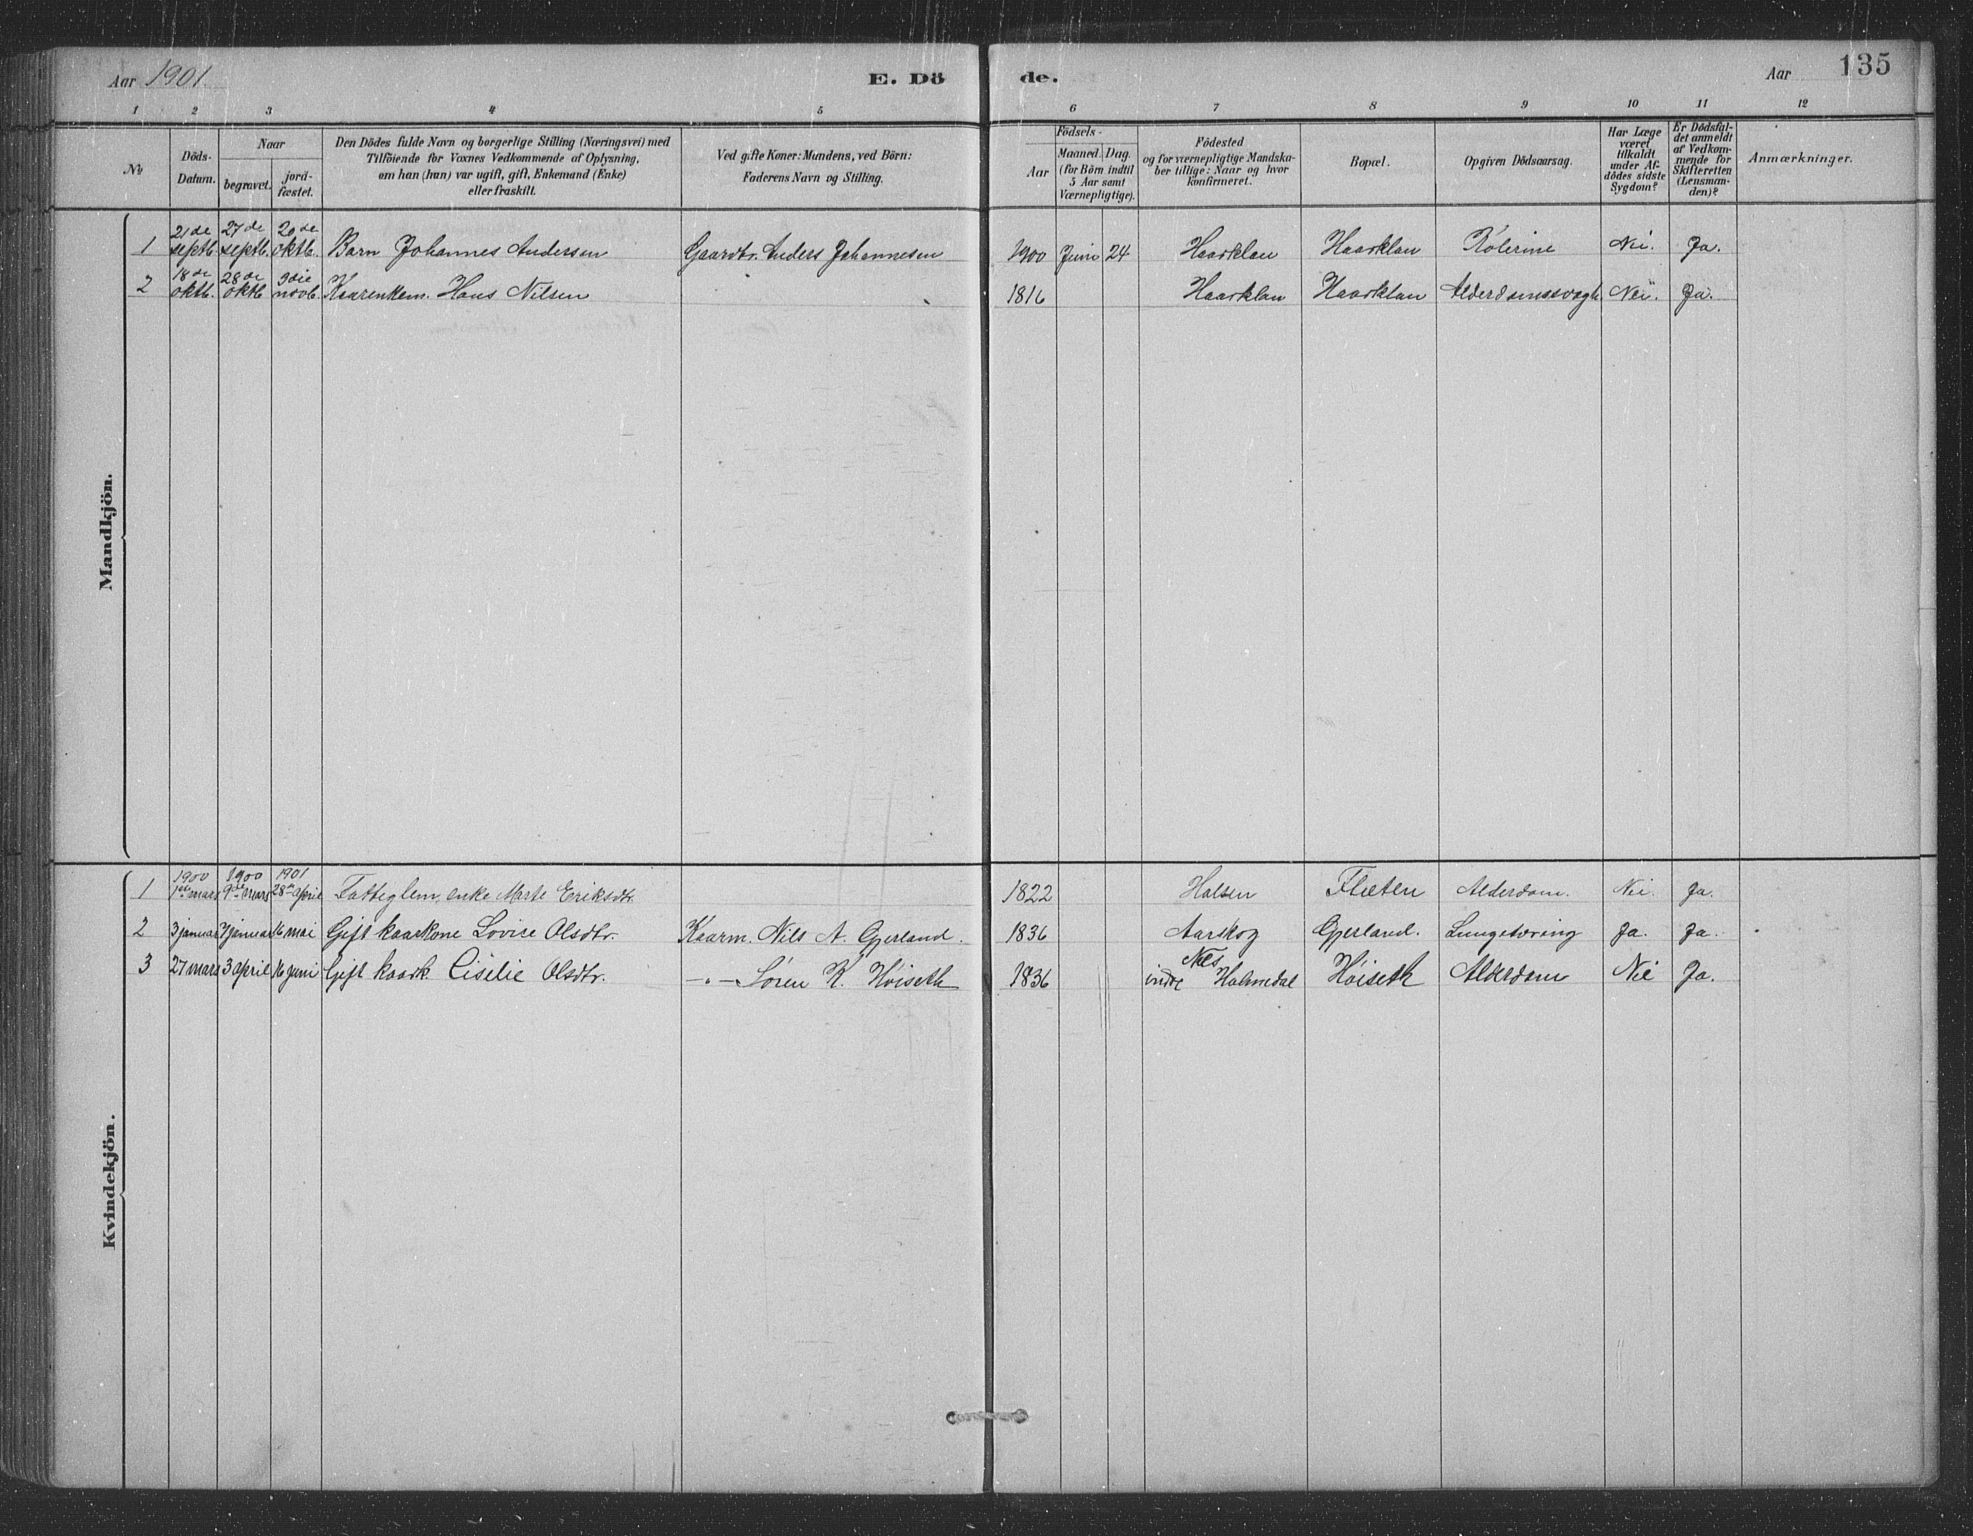 Aar 1901. E. Dö de. Aar 135
1 2 3 4 5 6 7 8 9 10 11 12
No
Döds-Datum.
Naar
begravet. jord-fæstet.
Den Dödes fulde Navn og borgerlige Stilling (Næringsvei) med
Tilföiende for Voxnes Vedkommende af Oplysning,
om han (hun) var ugift, gift, Enkemand (Enke)
eller fraskilt.
Ved gifte Koner: Mandens, ved Börn:
Faderens Navn og Stilling.
Födsels-
Aar
Maaned. Dag.
(for Börn indtil
5 Aar samt
Værnepligtige).
Födested
og for værnepligtige Mandska-
ber tillige: Naar og hvor
konfirmeret.
Bopæl.
Opgiven Dödsaarsag.
Har Læge
været
tilkaldt
under Af-
dödes sidste
Sygdom?
Er Dödsfal-
det anmeldt
af Vedkom-
mende for
Skifteretten
(Lensman-
den)?
Anmærkninger.
Mandkjön.
1 21de septb. 27de septb. 20de oktb. Barn Johannes Andersen Gaardbr. Anders Johannesen 1900 Juni 24 Haarklau Haarklau Kolerine Nei. Ja.
2 18de oktb. 28de oktb 9die novb. Kaarenkem. Hans Nilsen 1816 Haarklau Haarklau Alderdomssvagh. Nei. Ja.
Kvindekjön.
1 1900 1ste mars 1900 9de mars 1901 28de april Fattiglem, enke Marte Eriksdtr. 1822 Halsen Flæten Alderdom. Nei. Ja.
2 3 januar 7 januar 16 mai Gift kaarkone Lovise Olsdtr. Kaarm. Nils A. Gjerland. 1836 Aarskog Gjerland. Lungetæring Ja. Ja.
3 27 mars 3 april 16 juni Gift kaark. Ciselie Olsdtr. -"- Sören K. Höiseth 1836 Næs indre Holmedal Höiseth Alderdom Nei Ja.